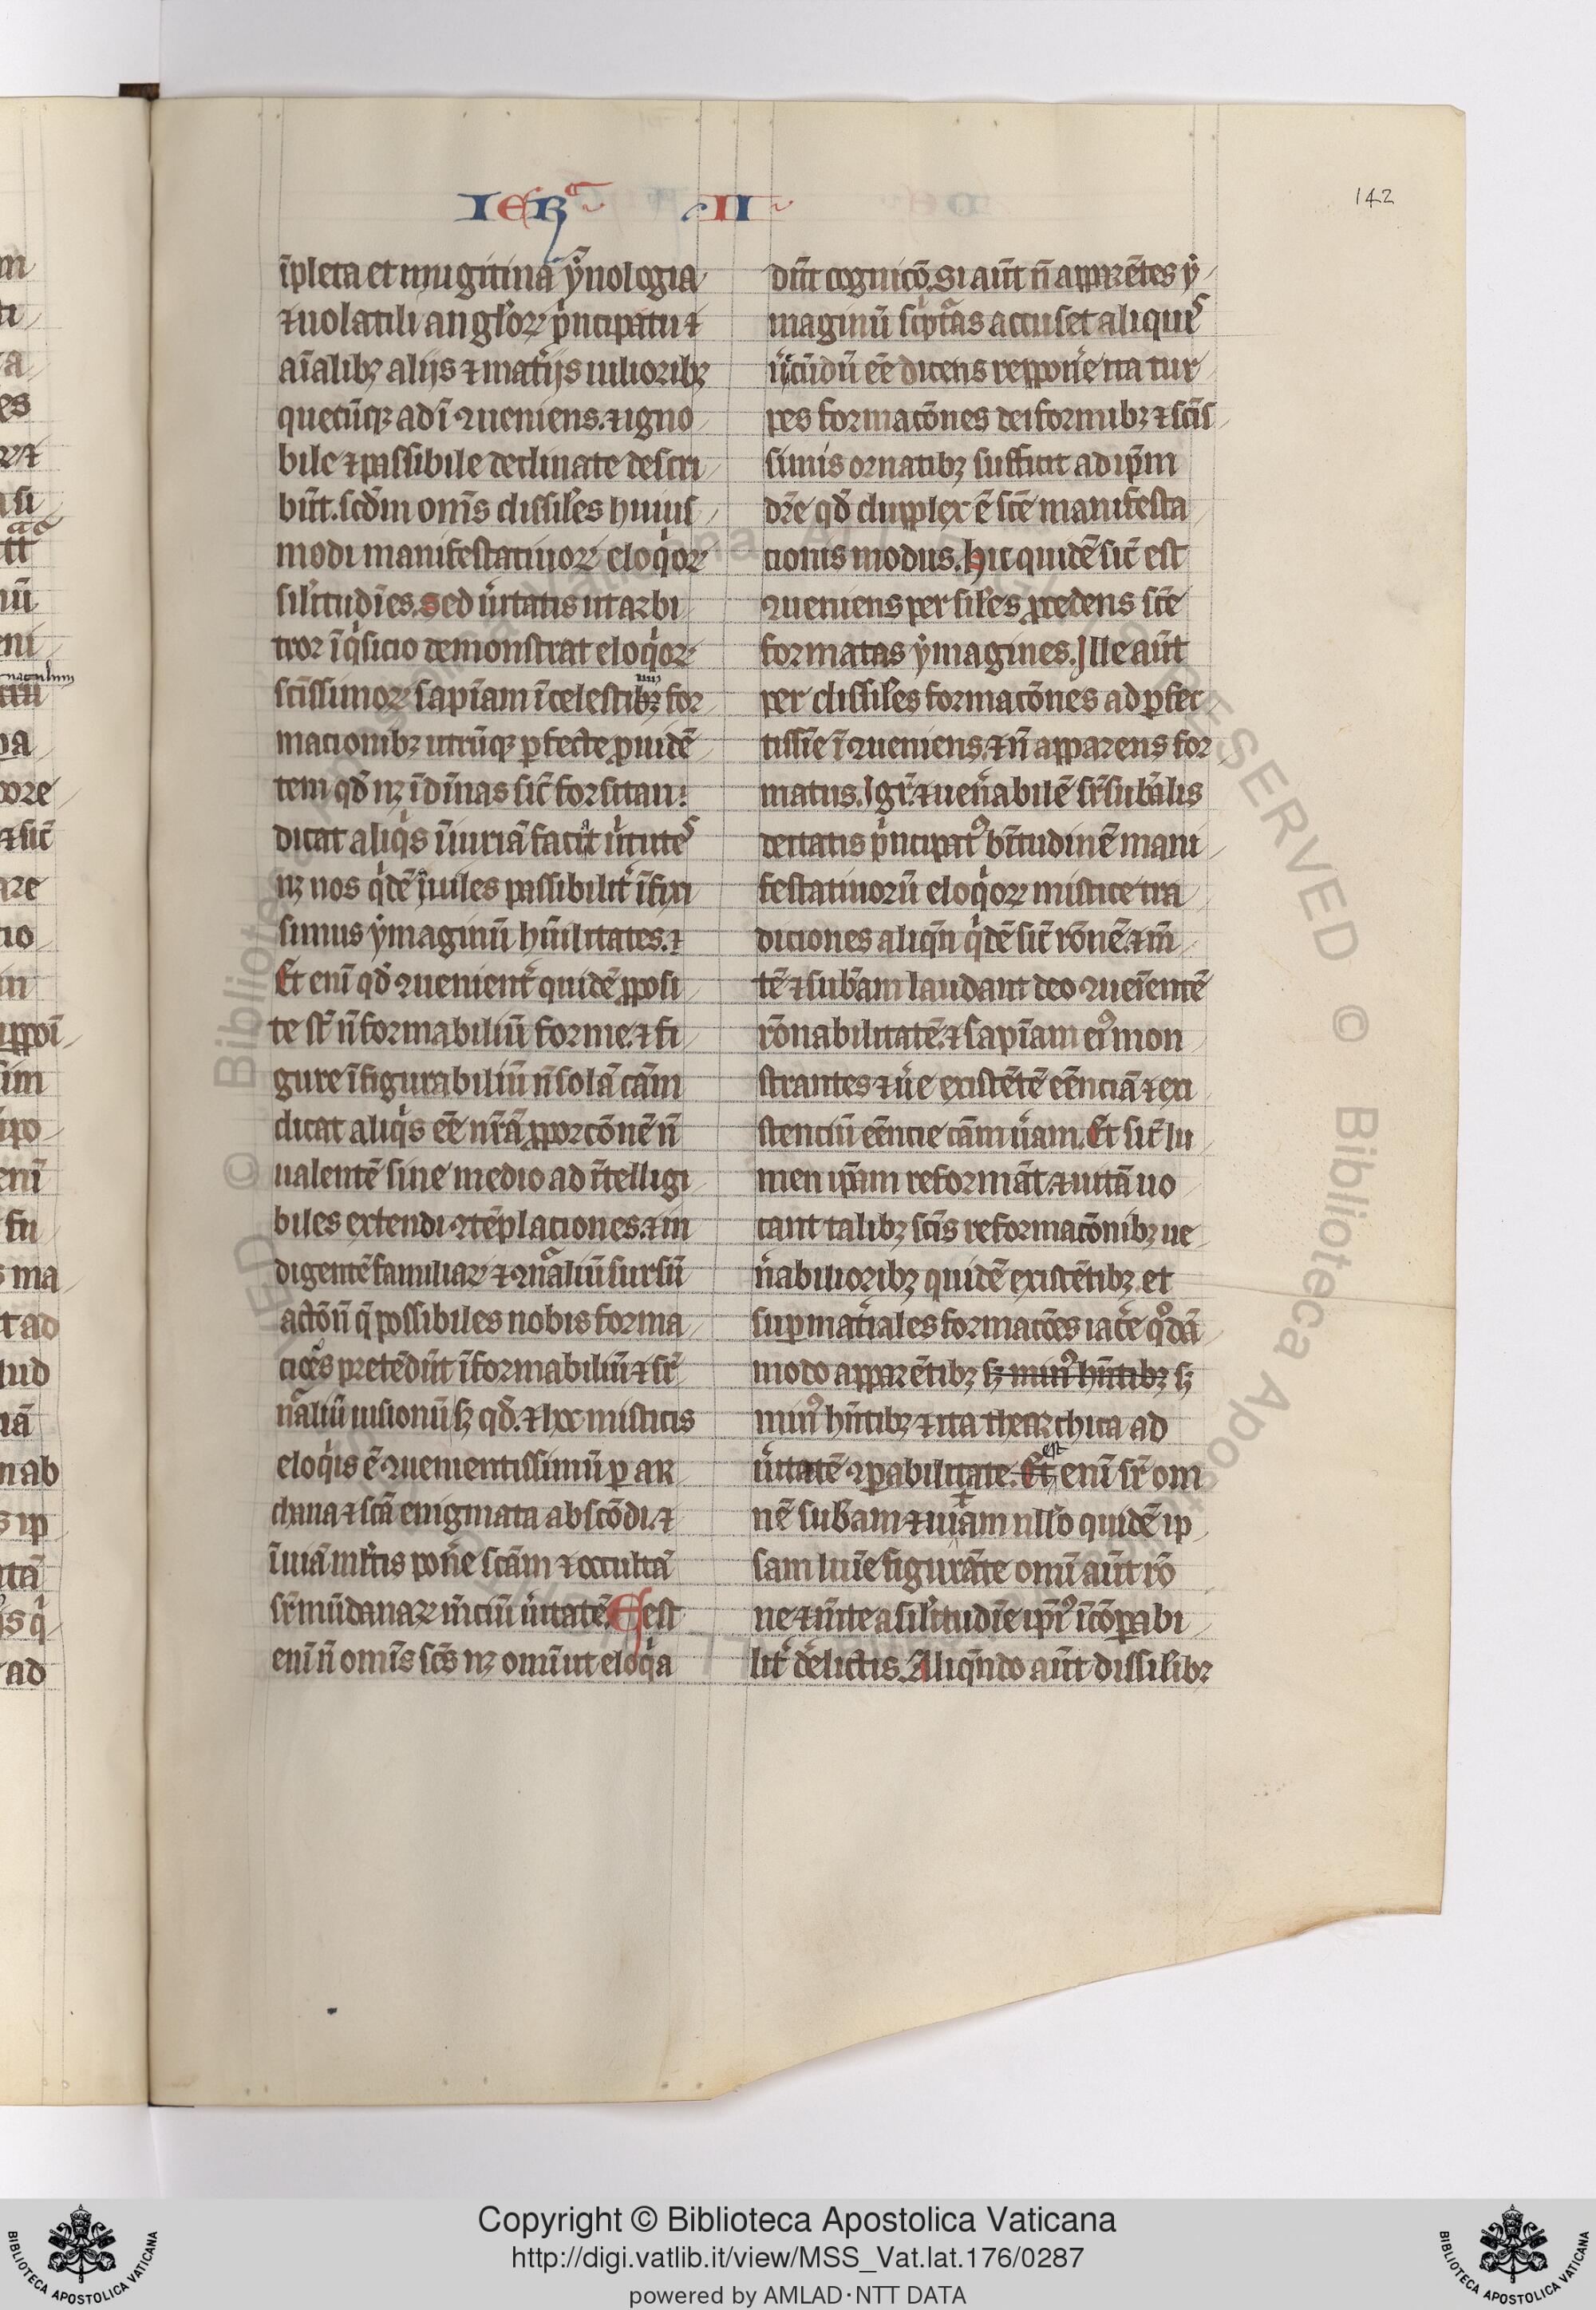 IERᵃ · II
142
īpleta et mugitina ẏnologia
⁊ uolatili anglōꝝ pͥncipatu ⁊
aīalibꝫ alijs ⁊ mat̄ijs uilioribꝫ
quecūqꝫ ad ī ꝯueniens. ⁊ igno
bile ⁊ passibile declinate descri
būt. scd̄m om̄s dissil̄es huius
modi manifestatiuoꝝ eloqͥoꝝ
sil̄itudīes. Sed ūitatis ut arbi
tror īqͥsicio demonstrat eloqͥoꝝ
sc̄issimoꝝ sapīam ī celestibꝫ for
macionibꝫ utrūqꝫ ꝑfecte ꝓuidē
tem qd̄ nꝫ ī diūnas sic̄ forsitan:
dicat aliqͥs īiuriā faciāt ūtuteˢ
nꝫ nos qͥdē ī uiles passibilit̄ īfixi
simus ẏmaginū hūilitates. ⁊
Et enī qd̄ ꝯuenient̄ quidē ꝓposi
te st̄ n̄ formabiliū forme. ⁊ fi
gure īfigurabiliū n̄ solā cām
dicat aliqͥs eē nr̄ā ꝓporcōnē n̄
ualentē sine medio ad ītelligi
biles extendi ꝯtēplaciones. ⁊ in
digentē familiaꝝ ⁊ ꝯnᵃaliū sursū
actōn̄ q̄ possibiles nobis forma
cioēs pretēdūt īformabiliū ⁊ sr̄
nᵃaliū uisionū sꝫ qd̄. ⁊ hoc misticis
eloqͥis ē ꝯuenientissimū ꝑ ar
chana ⁊ scā enigmata abscōdi. ⁊
īuiā ml̄tis pon̄e scām ⁊ occultā
sr̄mūdanaꝝ m̄ciū ūitatē. Est
enī n̄ om̄is sc̄s nꝫ omī ut eloqͥa
dūt cognicō. Si aūt n̄ apparētes ẏ
maginū sͥcptᵃas accuset aliquiˢ
ūecūdū eē dicens reppon̄e ita tur
pes formacōnes deiformibꝫ ⁊ sc̄is
simis ornatibꝫ sufficit ad ip̄m
dr̄e qd̄ dupplex ē sc̄e manifesta
cionis modus. Hic quidē sic̄ est
ꝯueniens per sil̄es ꝓcedens sc̄e
formatas ẏmagines. Ille aūt
per dissil̄es formacōnes ad ꝑfec
tissīe ī ꝯueniens. ⁊ n̄ apparens for
matus. Igr̄. ⁊ uen̄abilē sr̄sub̄alis
deitatis pͥncipatꝰ b̄itudinē mani
festatiuorū eloqͥoꝝ mistice tra
diciones aliqn̄ qͥdē sic̄ rōnē. ⁊ m̄
tē ⁊ sub̄am laudant deo ꝯueīentē
rōnabilitatē. ⁊ sapīam eiꝰ mon
strantes ⁊ ūe existētē eēnciā ⁊ exi
stenciū eēncie cām ūam. Et sic̄ lu
men ip̄am reformāt. ⁊ uitā uo
cant talibꝫ sc̄is reformacōnibꝫ ue
n̄abilioribꝫ quidē existētibꝫ. et
suꝑmat̄iales formacōes iac̄e qͦdā
modo apparētibꝫ sꝫ minꝰ hn̄tibꝫ sꝫ
minꝰ hn̄tibꝫ ⁊ ita thearchica ad
est
ūitatē ꝯpabilitate. Et enī sr̄ om
nē sub̄am ⁊ uiam nll̄o quidē ip
sam luīe figurāte omī aūt rō
ne ⁊ m̄te a sil̄itudīe ip̄iꝰ īcōꝑabi
lit̄ d̄elictis. Aliqn̄do aūt dissilibꝫ
Copyright © Biblioteca Apostolica Vaticana
http://digi.vatlib.it/view/MSS_Vat.lat.176/0287
powered by AMLAD·NTT DATA